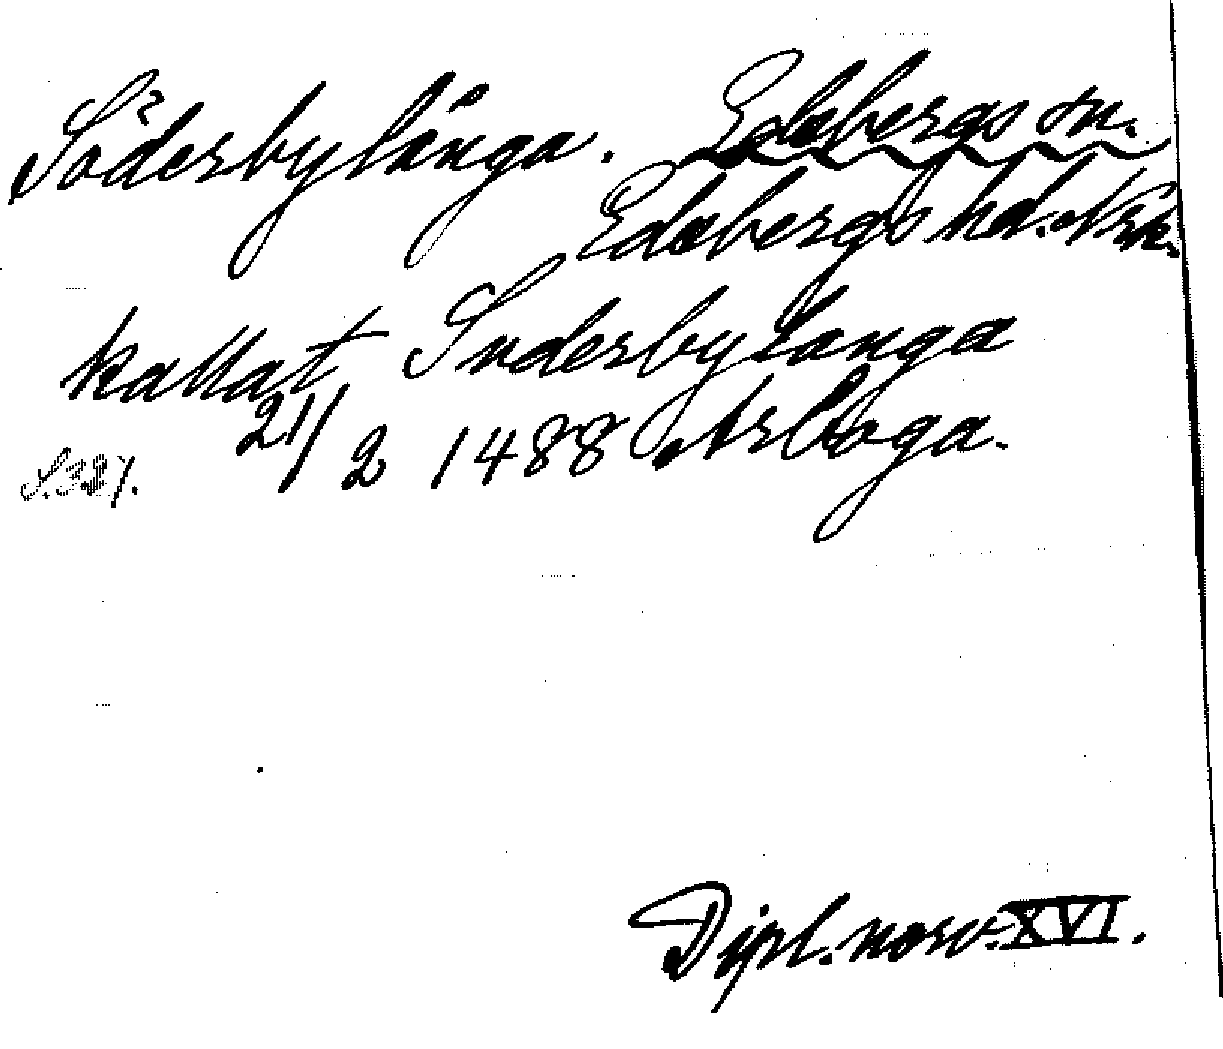 Söderbylånga. Edsbergs sn.
Edsbergs hd. Nrk.
kallat Suderbylanga
21/2 1488 Arboga.
S. 327.
Dipl. norv. XVI.